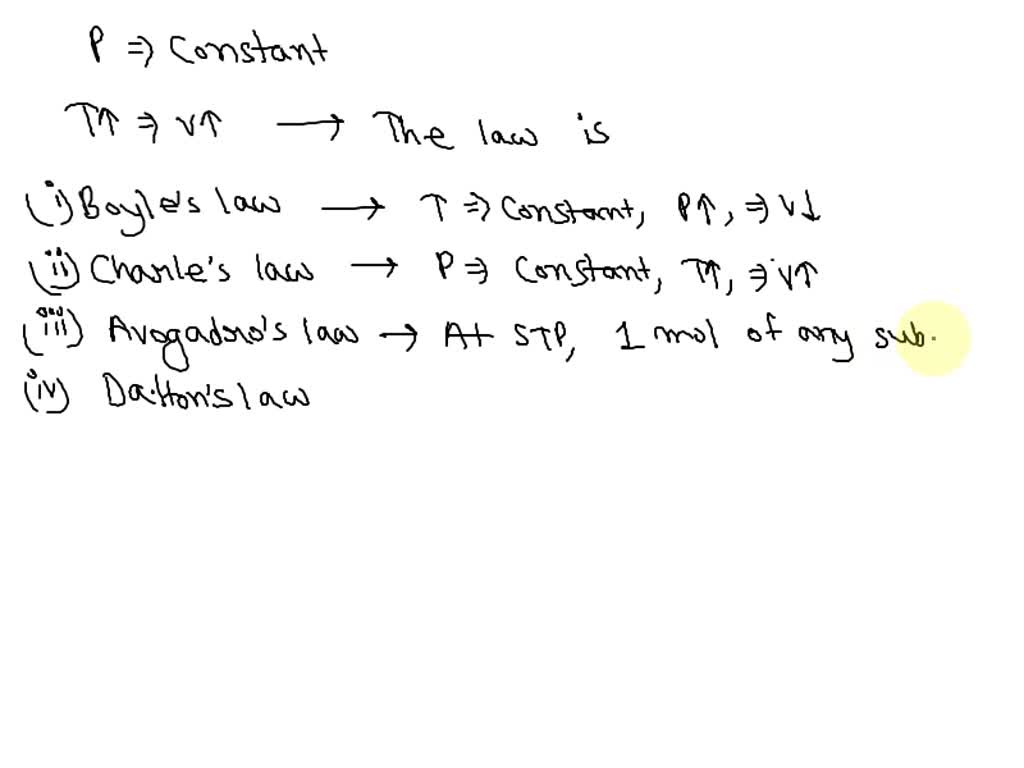 P ⇒ Constant
T↑ ⇒ V↑ → The law is
(i) Boyle's law → T ⇒ Constant, P↑, ⇒ V↓
(ii) Charle's law → P ⇒ Constant, T↑, ⇒ V↑
(iii) Avogadro's law → At STP, 1 mol of any sub.
(iv) Dalton's law